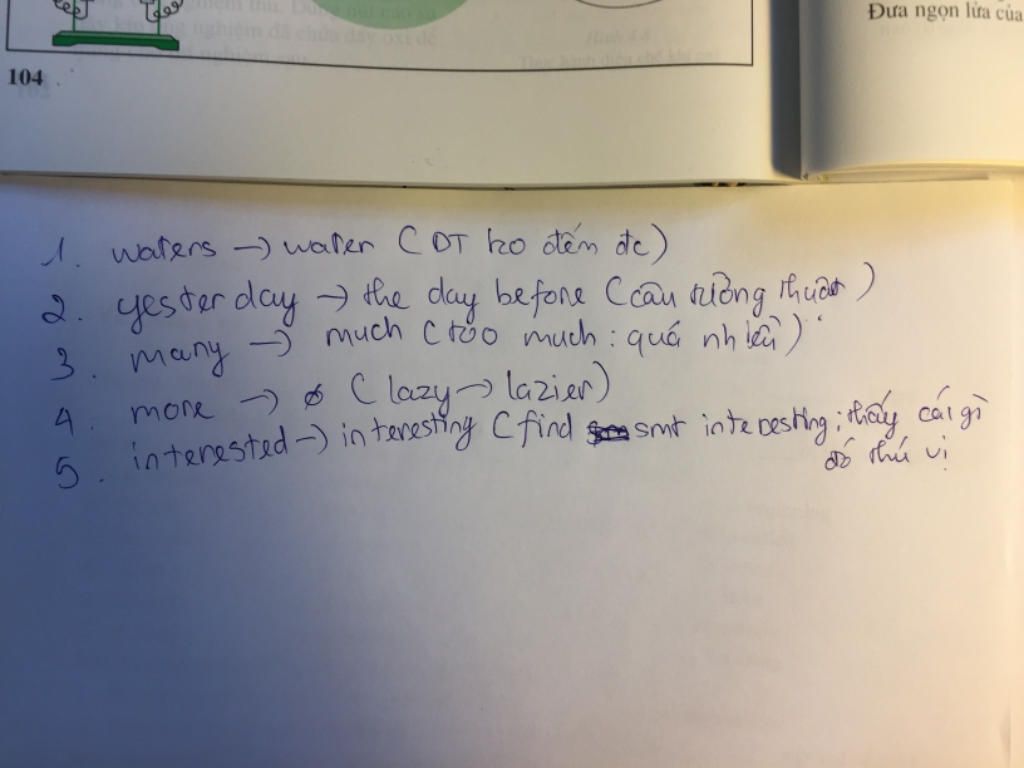 Đưa ngọn lửa của
104
1. waters → water (DT ko đếm đc)
2. yesterday → the day before (câu tường thuật)
3. many → much (too much : quá nhiều)
4. more → ø (lazy → lazier)
5. interested → interesting (find smt interesting : thấy cái gì
đó thú vị